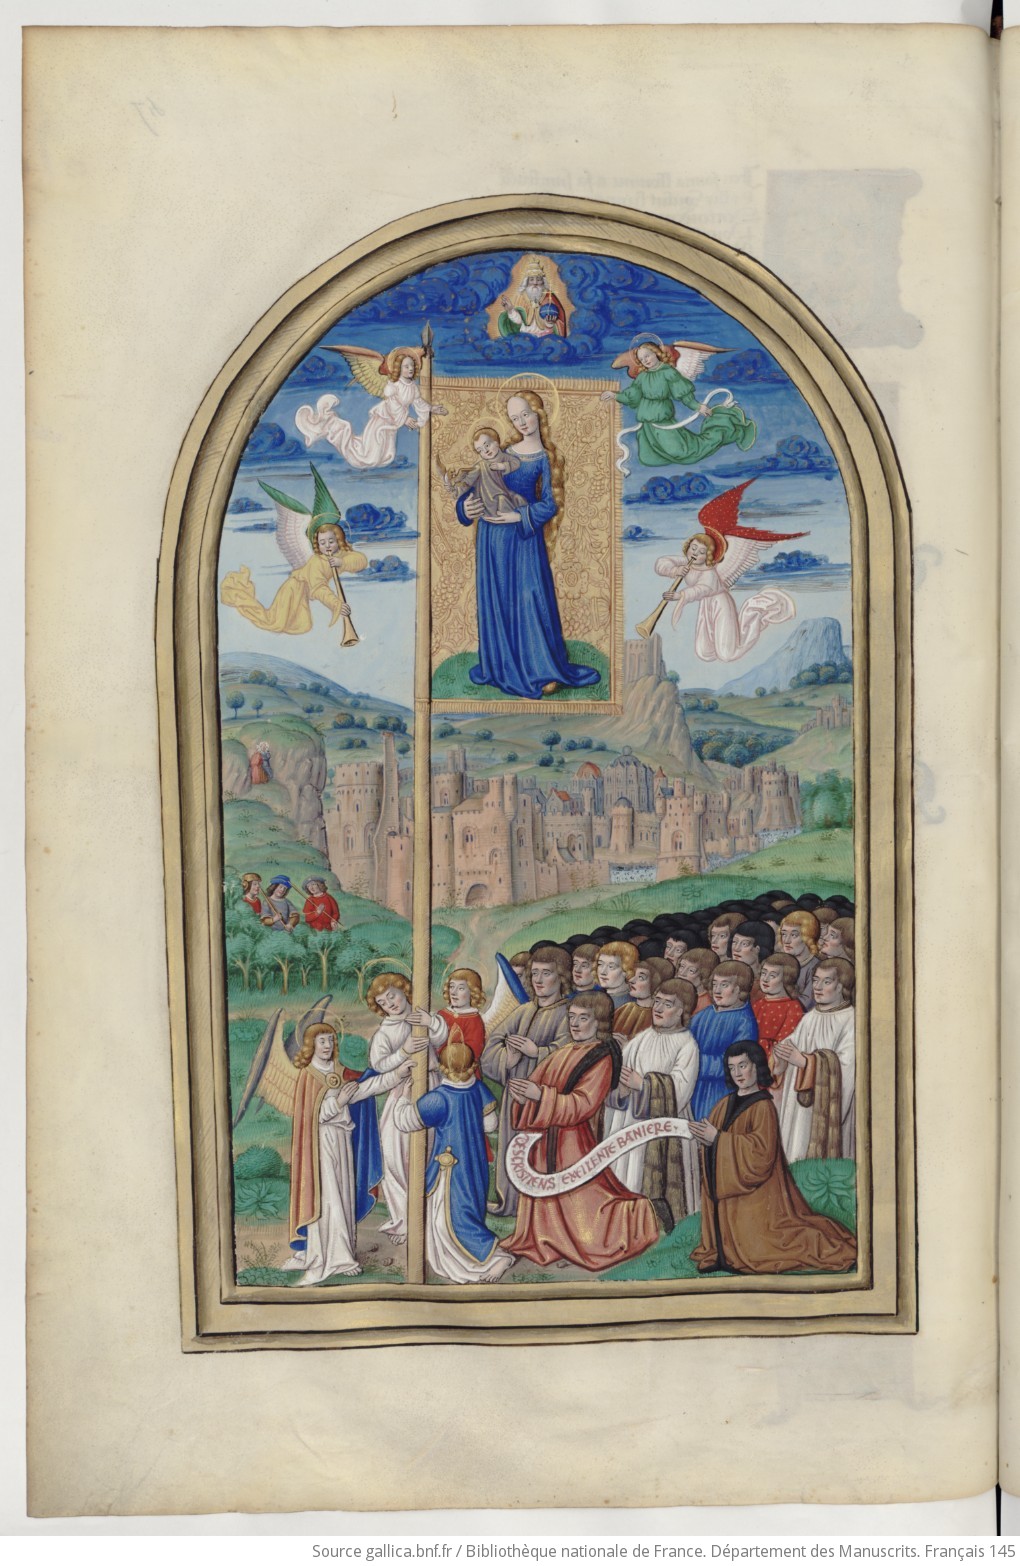 DESCRSTIENS EXELLENTE BANIERE.
Source gallica.bnf.fr / Bibliothèque nationale de France. Département des Manuscrits. Français 145